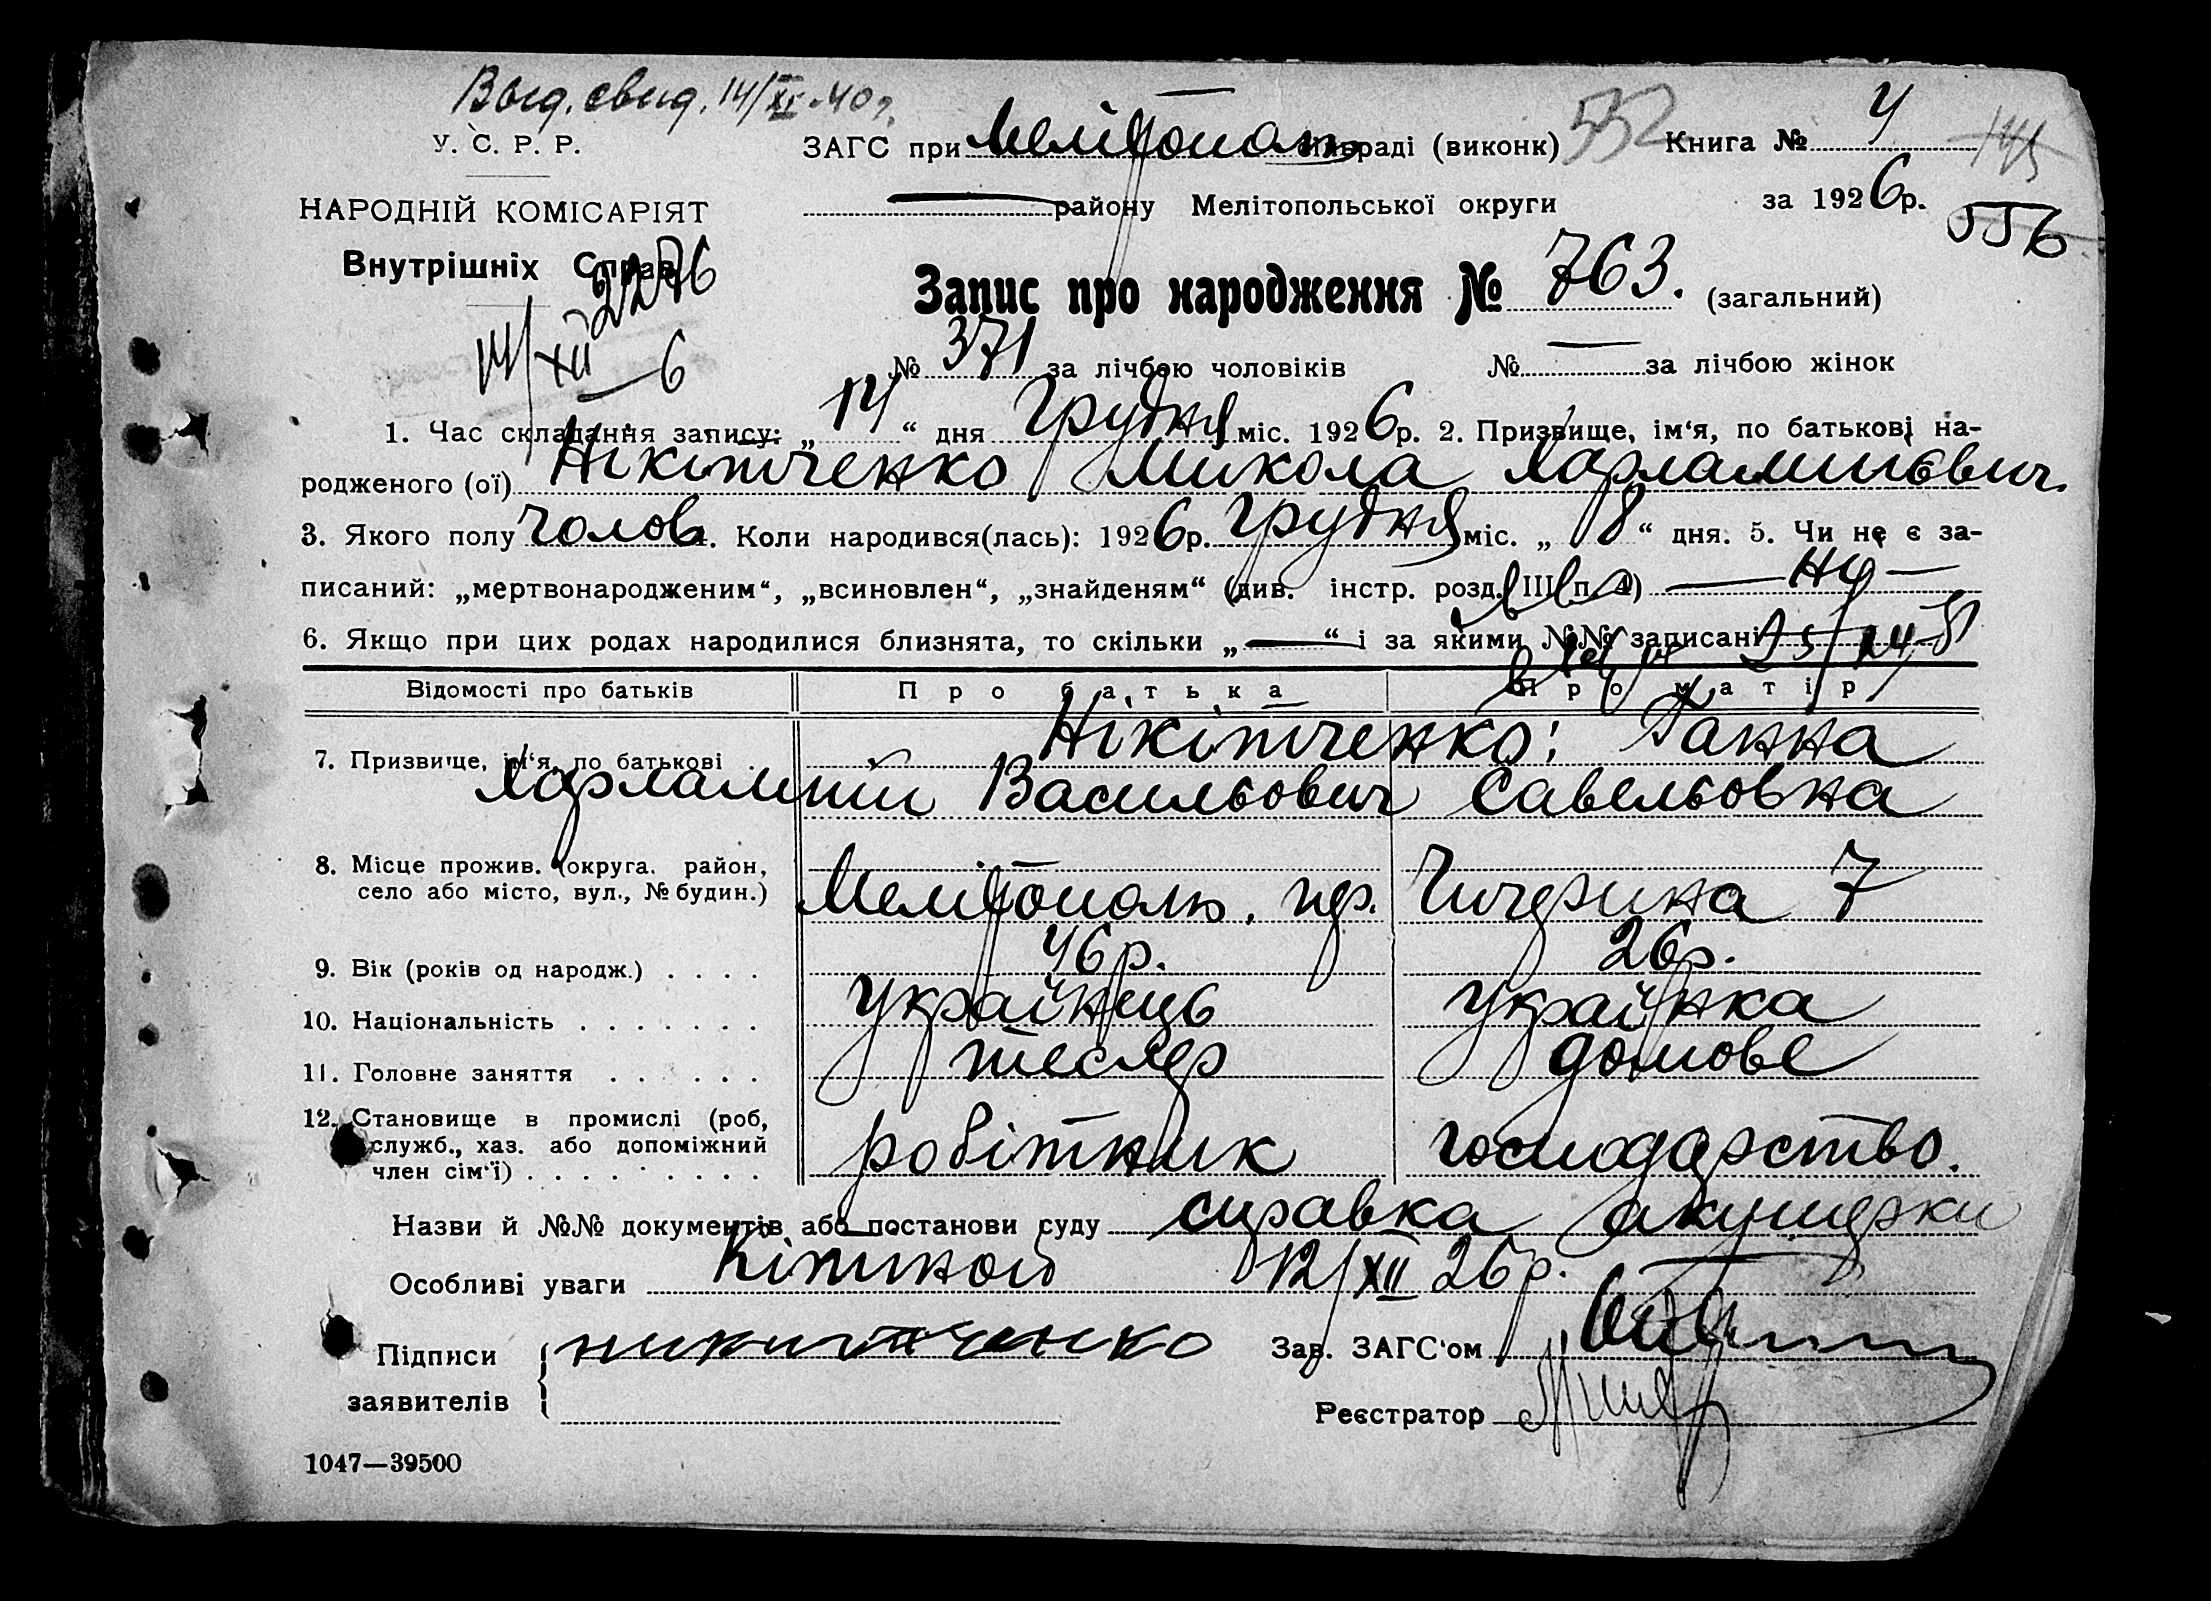 Выд. свид. 14/XI-40г.
У. С. Р. Р.
ЗАГС при Мелітопол раді (виконк) 552 Книга № 4
НАРОДНІЙ КОМІСАРІЯТ
Внутрішніх Справ
району Мелітопольської округи за 1926р.
556
2276
14/XII-6
Запис про народження № 763. (загальний)
№ 371 за лічбою чоловіків № — за лічбою жінок
1. Час складання запису: „14“ дня Грудня міс. 1926р. 2. Призвище, ім‘я, по батькові на-
родженого (ої) Нікітченко Микола Харлампієвич.
3. Якого полу чолов. Коли народився(лась): 1926р. Грудня міс. „8“ дня. 5. Чи не є за-
писаний: „мертвонародженим“, „всиновлен“, „знайденям“ (див. інстр. розд. III п. 4) — ні —
6. Якщо при цих родах народилися близнята, то скільки „—“ і за якими №№ записані
Відомості про батьків Про батька Про матір
7. Призвище, ім‘я, по батькові . Нікітченко: Ганна
Харлампій Васильович Савельовна
8. Місце прожив. (округа. район,
село або місто, вул., № будин.) Мелітополь, пр. Чичерина 7
9. Вік (років од народж.) . . . . 46р. 26р.
10. Національність . . . . . . . українець українка
11. Головне заняття . . . . . . тесляр домове
12. Становище в промислі (роб,
служб., хаз. або допоміжний
член сім‘ї) . . . . . . . . робітник господарство.
Назви й №№ документів або постанови суду справка акушерки
Особливі уваги 12/XII 26р.
Підписи никитченко Зав. ЗАГС‘ом
заявителів
Реєстратор
1047—39500